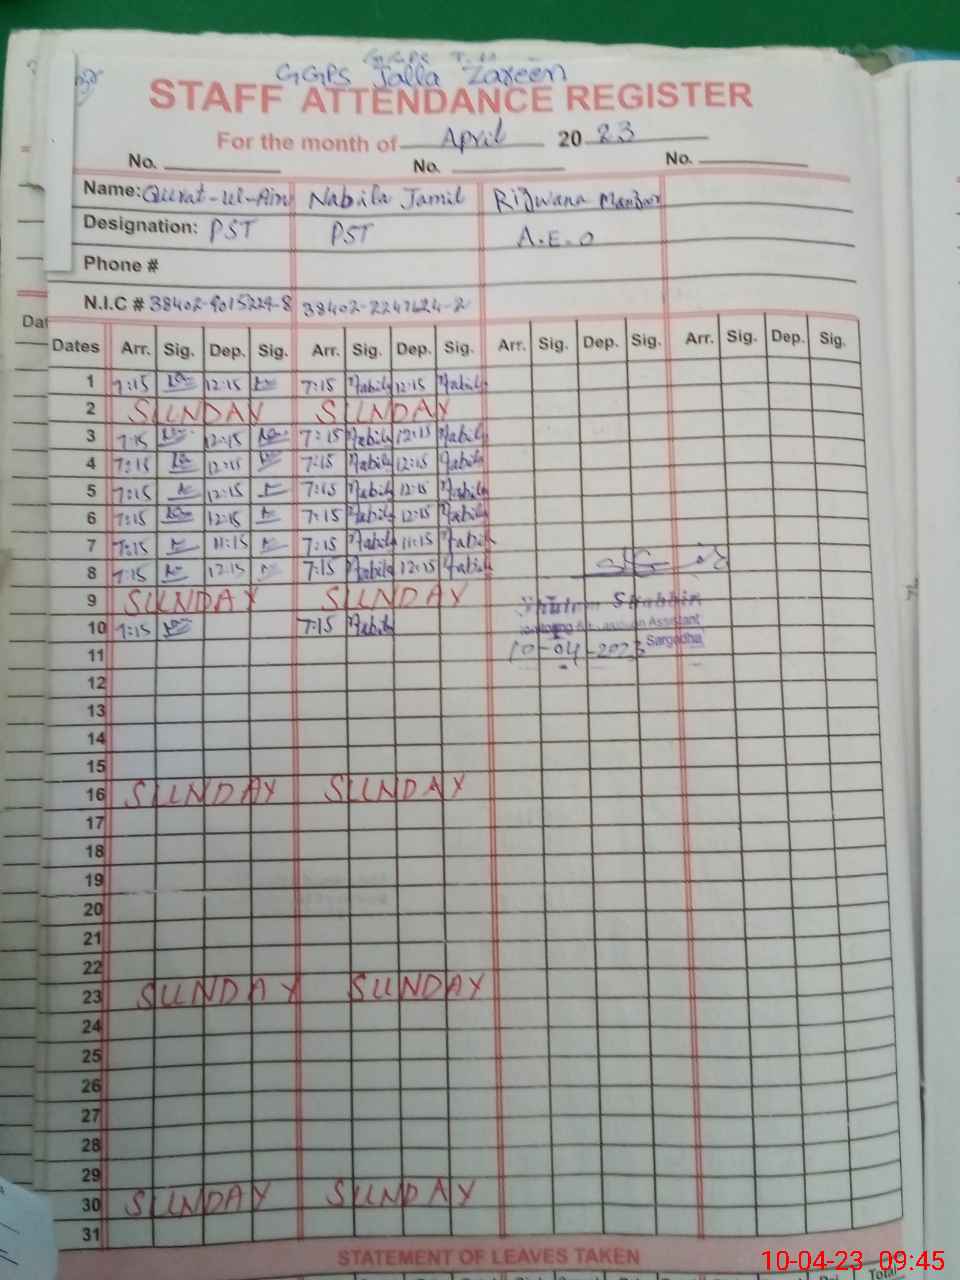 GGPS Jalla Zareen
STAFF ATTENDANCE REGISTER
For the month of April 2023
No. No. No.
Name: Qurat-ul-Ain Nabila Jamil Rijwana Manzoor
Designation: PST PST A.E.O
Phone #
N.I.C # 38402-9015229-8 38402-2247624-2
Dates Arr. Sig. Dep. Sig. Arr. Sig. Dep. Sig. Arr. Sig. Dep. Sig. Arr. Sig. Dep. Sig.
1 7:15 12:15 7:15 Nabila 12:15 Nabila
2 SUNDAY SUNDAY
3 7:15 12:15 7:15 Nabila 12:15 Nabila
4 7:15 12:15 7:15 Nabila 12:15 Nabila
5 7:15 12:15 7:15 Nabila 12:15 Nabila
6 7:15 12:15 7:15 Nabila 12:15 Nabila
7 7:15 11:15 7:15 Nabila 11:15 Nabila
8 7:15 12:15 7:15 Nabila 12:15 Nabila
9 SUNDAY SUNDAY Shabbir
10 7:15 7:15 Nabila Assistant
Sargodha
11 10-04-2023
12
13
14
15
16 SUNDAY SUNDAY
17
18
19
20
21
22
23 SUNDAY SUNDAY
24
25
26
27
28
29
30 SUNDAY SUNDAY
31
STATEMENT OF LEAVES TAKEN
Total
10-04-23 09:45